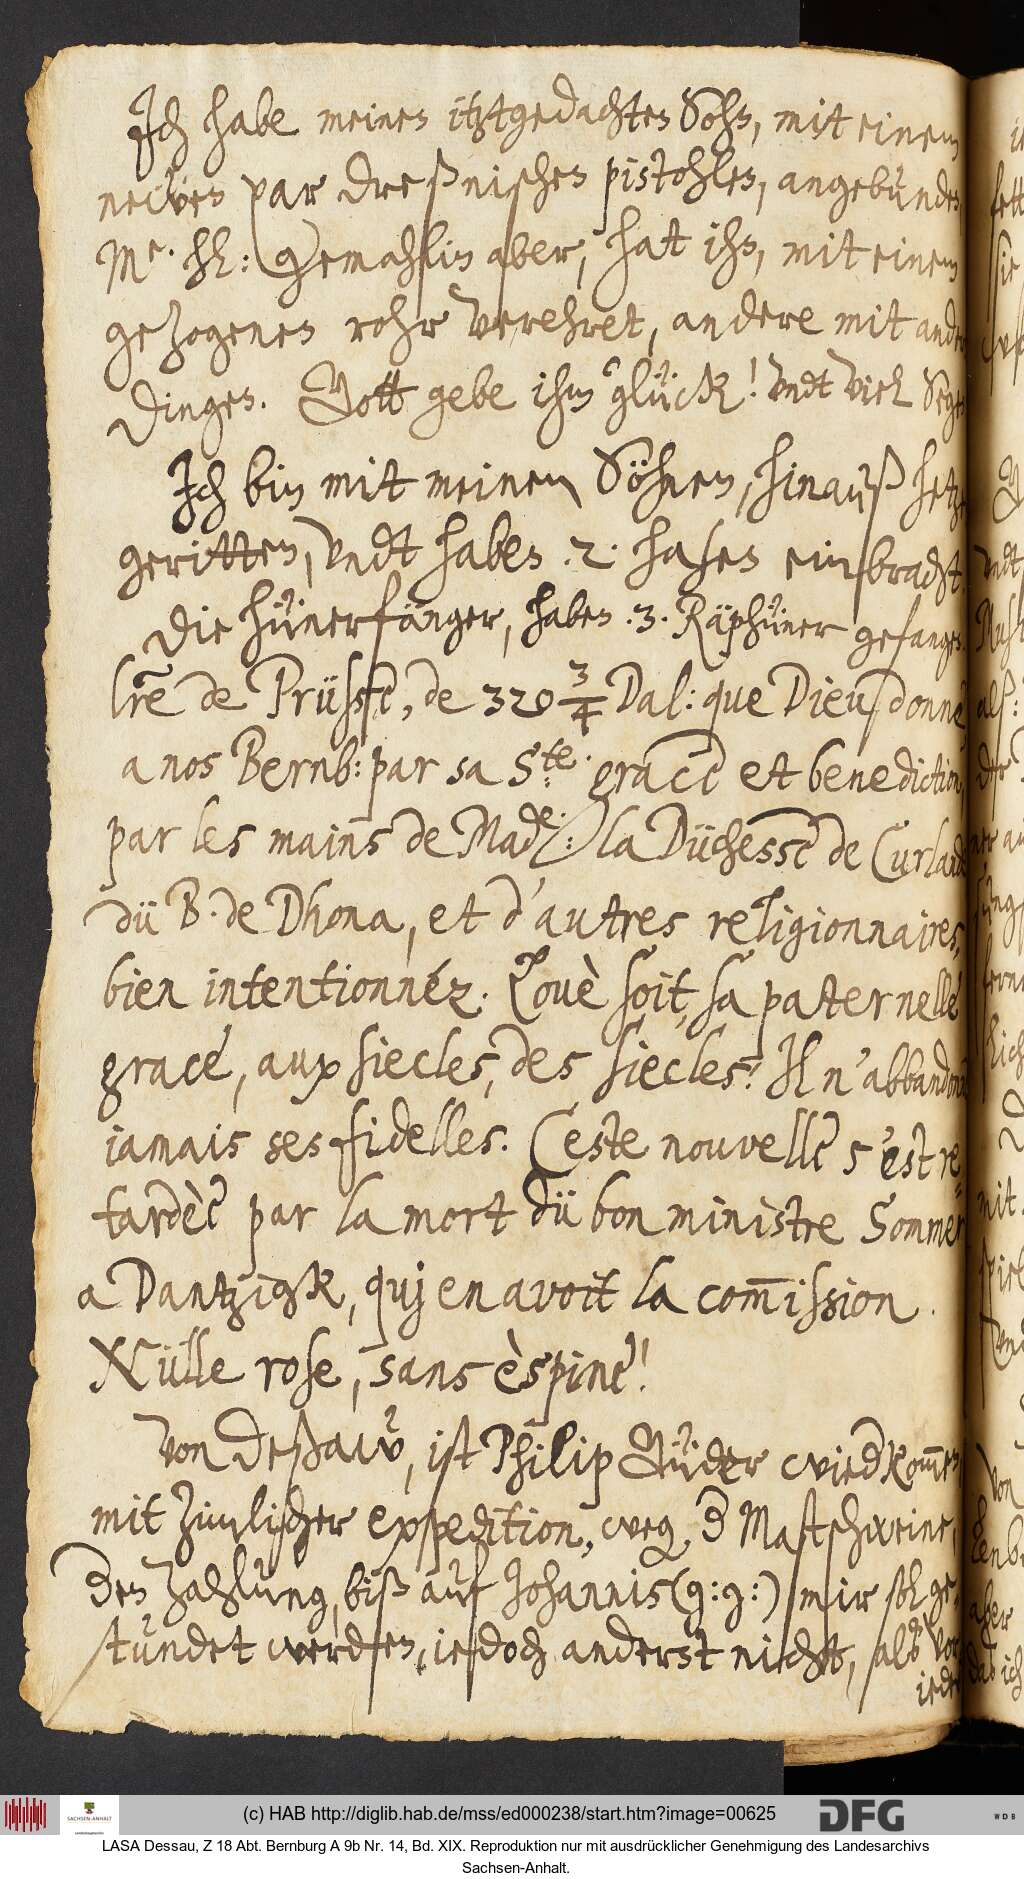 Ich habe meinen itztgedachten Sohn, mit einem
neẅen par dreßnischen pistohlen, angebunden
Me. hl: Gemahlin aber, hat ihn, mit einem
gezogenen rohr verehret, andere mit andern
dingen. Gott gebe ihm glück! vndt viel Segen
Ich bin mit meinen Söhnen, hinauß hetzen
geritten, vndt haben .2. hasen einbracht
Die hünerfänger, haben .3. Räphüner gefangen.
lre de Prüsse, de 320 3/4 Dal: que Dieu donne
a nos Bernb: par sa Ste. grace et benediction,
par les mains de Made.: la Düchesse de Curlande
dü B. de Dhona, et d'autres religionnaires,
bien intentionnéz. Louè soit, sa paternelle
grace, aux siecles, des siecles! Il n'abbandonne
iamais ses fidelles. Ceste nouvelle s'est re-
tardèe par la mort dü bon ministre Sommer
a Dantzigk, quj en avoit la com̄ission.
Nülle rose, sans èspine!
Von Deßaẅ, ist Philip Güder wied kom̄en
mit zimlicher expedition, weg. d Mastschweine,
den zahlung, biß auf Johannis (g: g:) mir sol ge-
stundet werden, iedoch anderst nicht, alß vor
iede
ie
fett
sie
Vndt
alß:
der
ner au
mit
Vnd
Von
aber
daß ich
(c) HAB http://diglib.hab.de/mss/ed000238/start.htm?image=00625
SACHSEN-ANHALT
DFG
WDB
LASA Dessau, Z 18 Abt. Bernburg A 9b Nr. 14, Bd. XIX. Reproduktion nur mit ausdrücklicher Genehmigung des Landesarchivs
Sachsen-Anhalt.